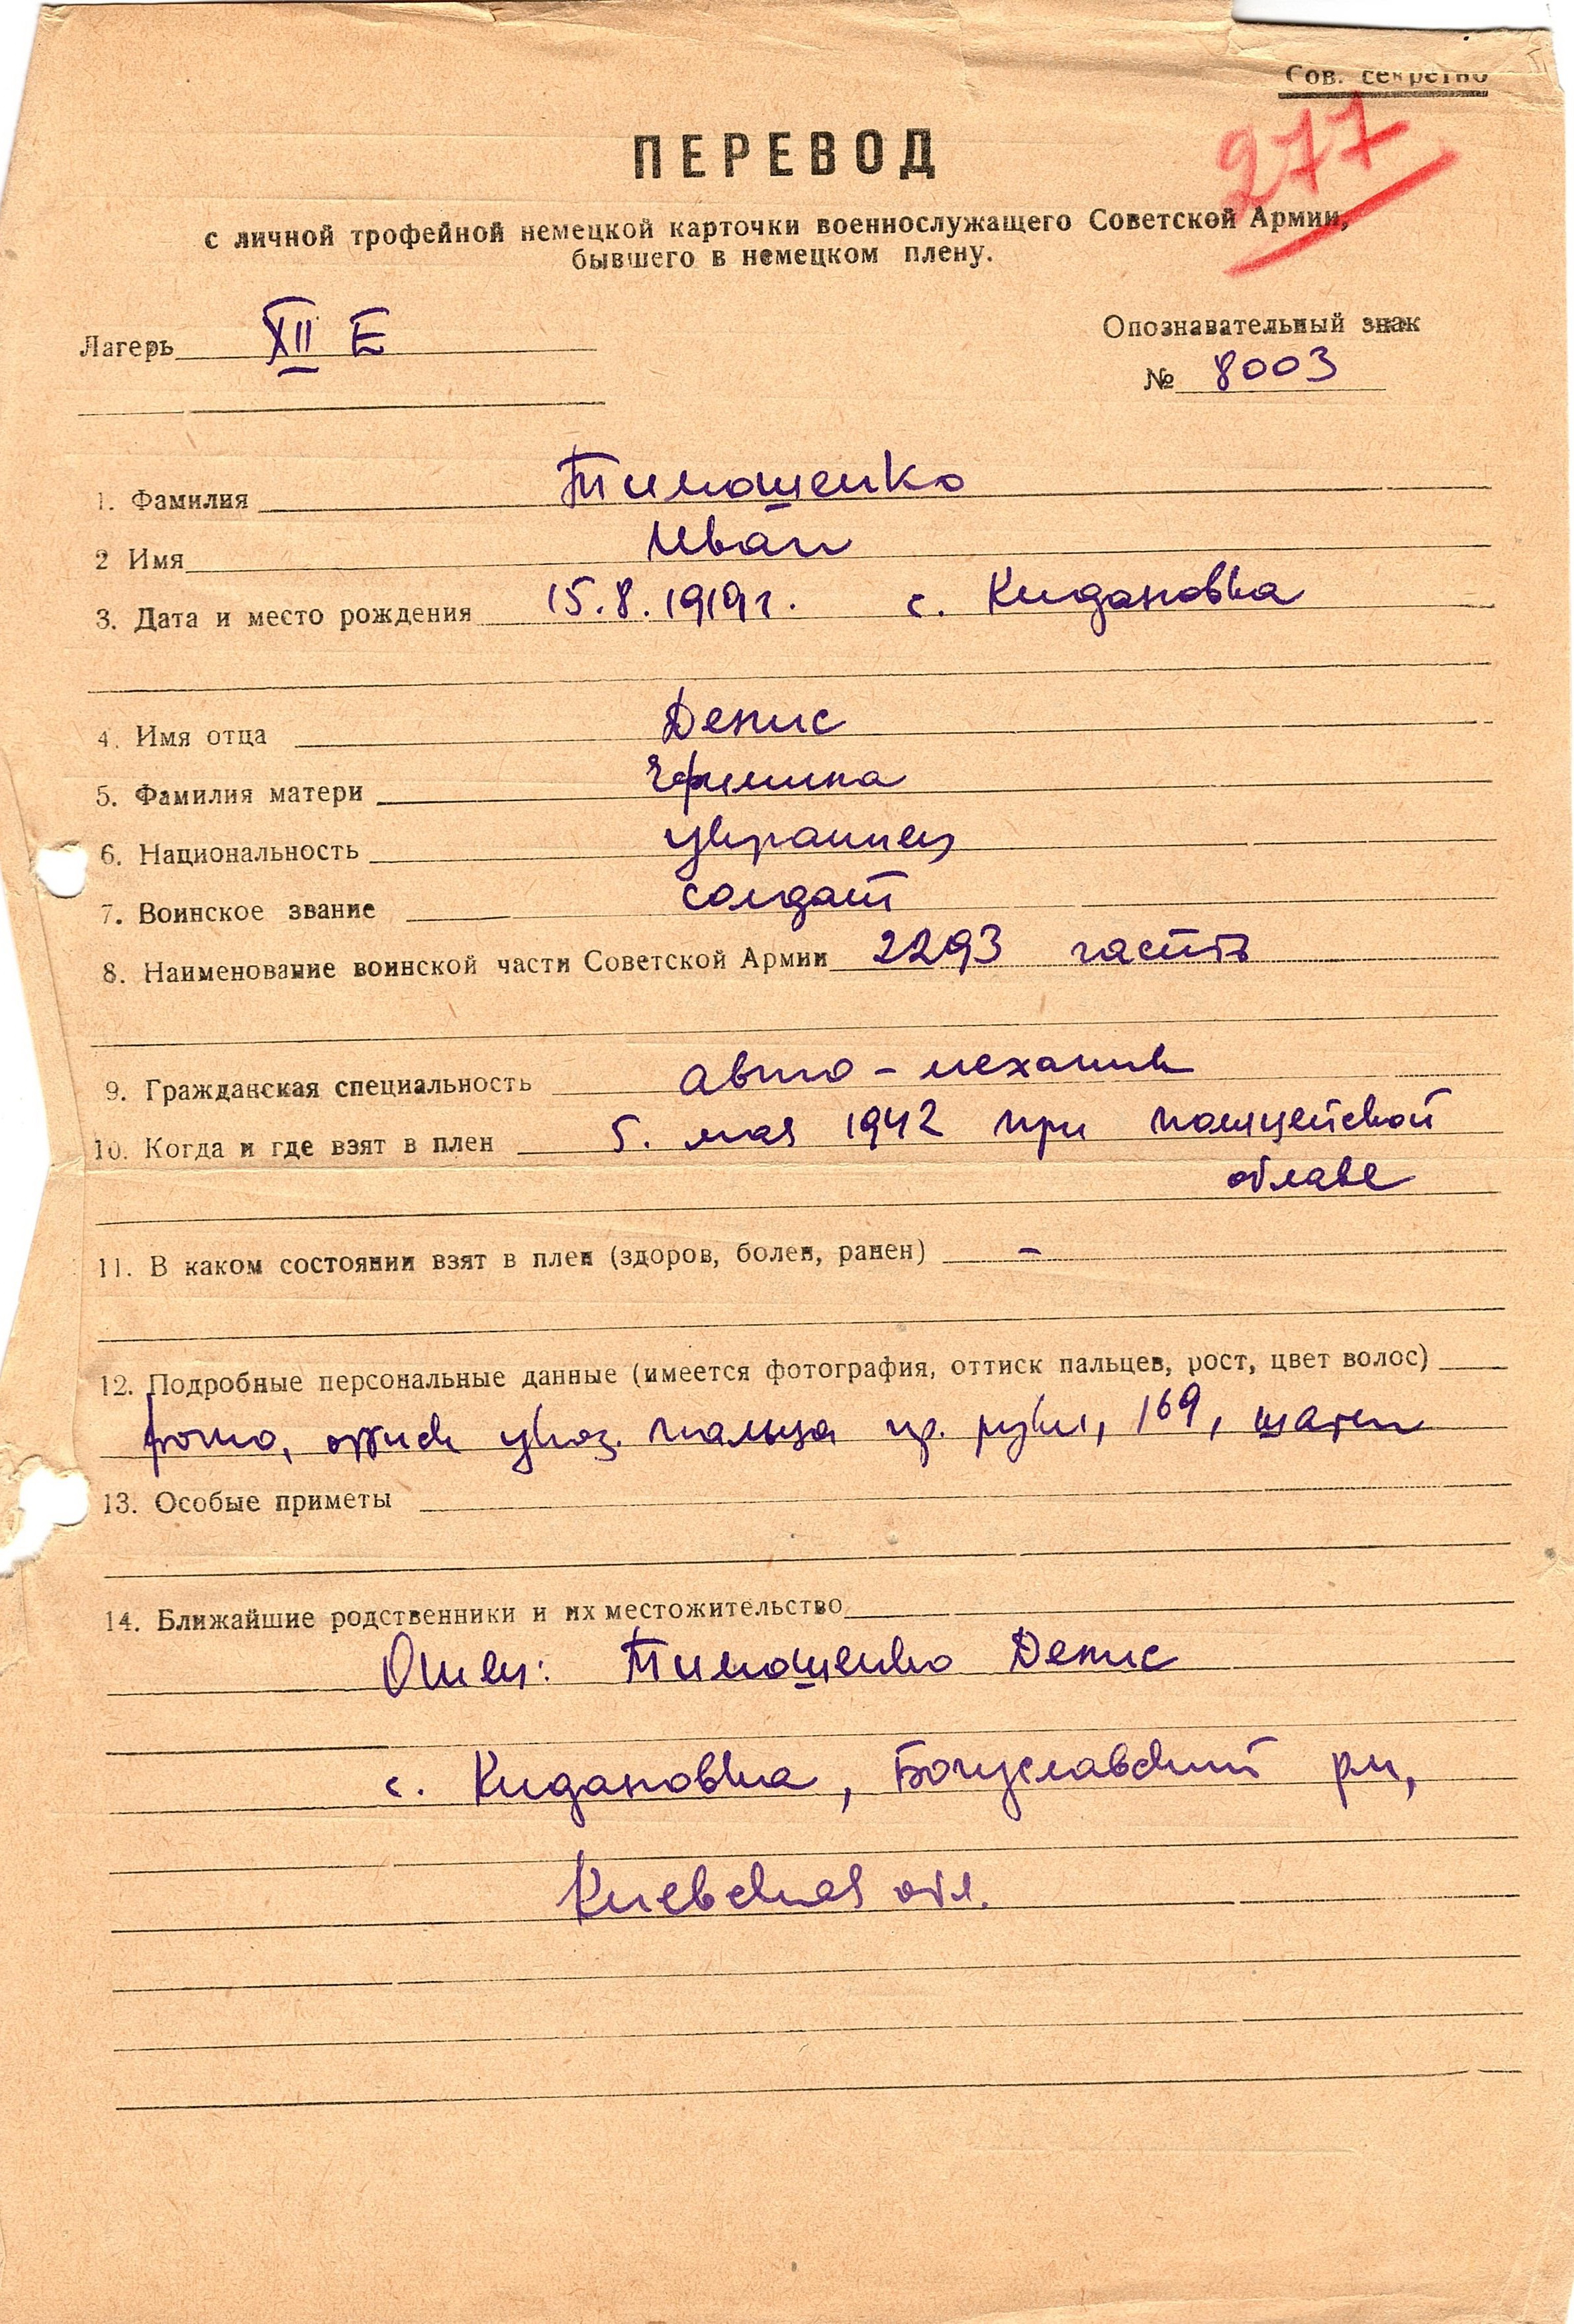 Сов. секретно
277
ПЕРЕВОД
с личной трофейной немецкой карточки военнослужащего Советской Армии,
бывшего в немецком плену.
Лагерь XII E
Опознавательный знак
№ 8003
1. Фамилия Тимошенко
2 Имя Иван
3. Дата и место рождения 15.8.1919г. с. Кидановка
4. Имя отца Денис
5. Фамилия матери Ефимина
6. Национальность украинец
7. Воинское звание солдат
8. Наименование воинской части Советской Армии 2293 часть
9. Гражданская специальность авто-механик
10. Когда и где взят в плен 5. мая 1942 при полицейской
облаве
11. В каком состоянии взят в плен (здоров, болен, ранен) –
12. Подробные персональные данные (имеется фотография, оттиск пальцев, рост, цвет волос)
фото, оттиск указ. пальца пр. руки, 169, шатен
13. Особые приметы
14. Ближайшие родственники и их местожительство
Отец: Тимошенко Денис
с. Кидановка, Богуславский рн,
Киевская обл.